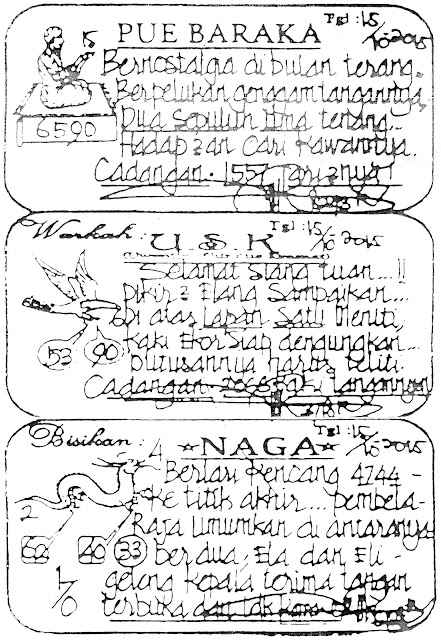 PUE BARAKA
Tgl : 15/10-2015
Bernostalgia di bulan terang.
Berpelukan genggam tangannya
Dua Sepuluh lima tenang...
Hadap2an Cari Kawannya.
6590
Cadangan. 1557
Warkah : U S K
Tgl : 15/10 2015
Selamat Siang tuan...!!
pikir2 Elang Sampaikan...
Di atas lapan Satu Meniti,
Kaki Ekor Siap dengungkan...
putusannya harus teliti.
53 90
Cadangan
Bisikan : NAGA
Tgl : 15/10 2015
4
Berlari Kencang 4744 -
Ke titik akhir... pembela-
2
Raja Umumkan di antaranya
62 40 33
berdua, Ela dan Eli -
geleng kepala terima tangan
terbuka dan tak